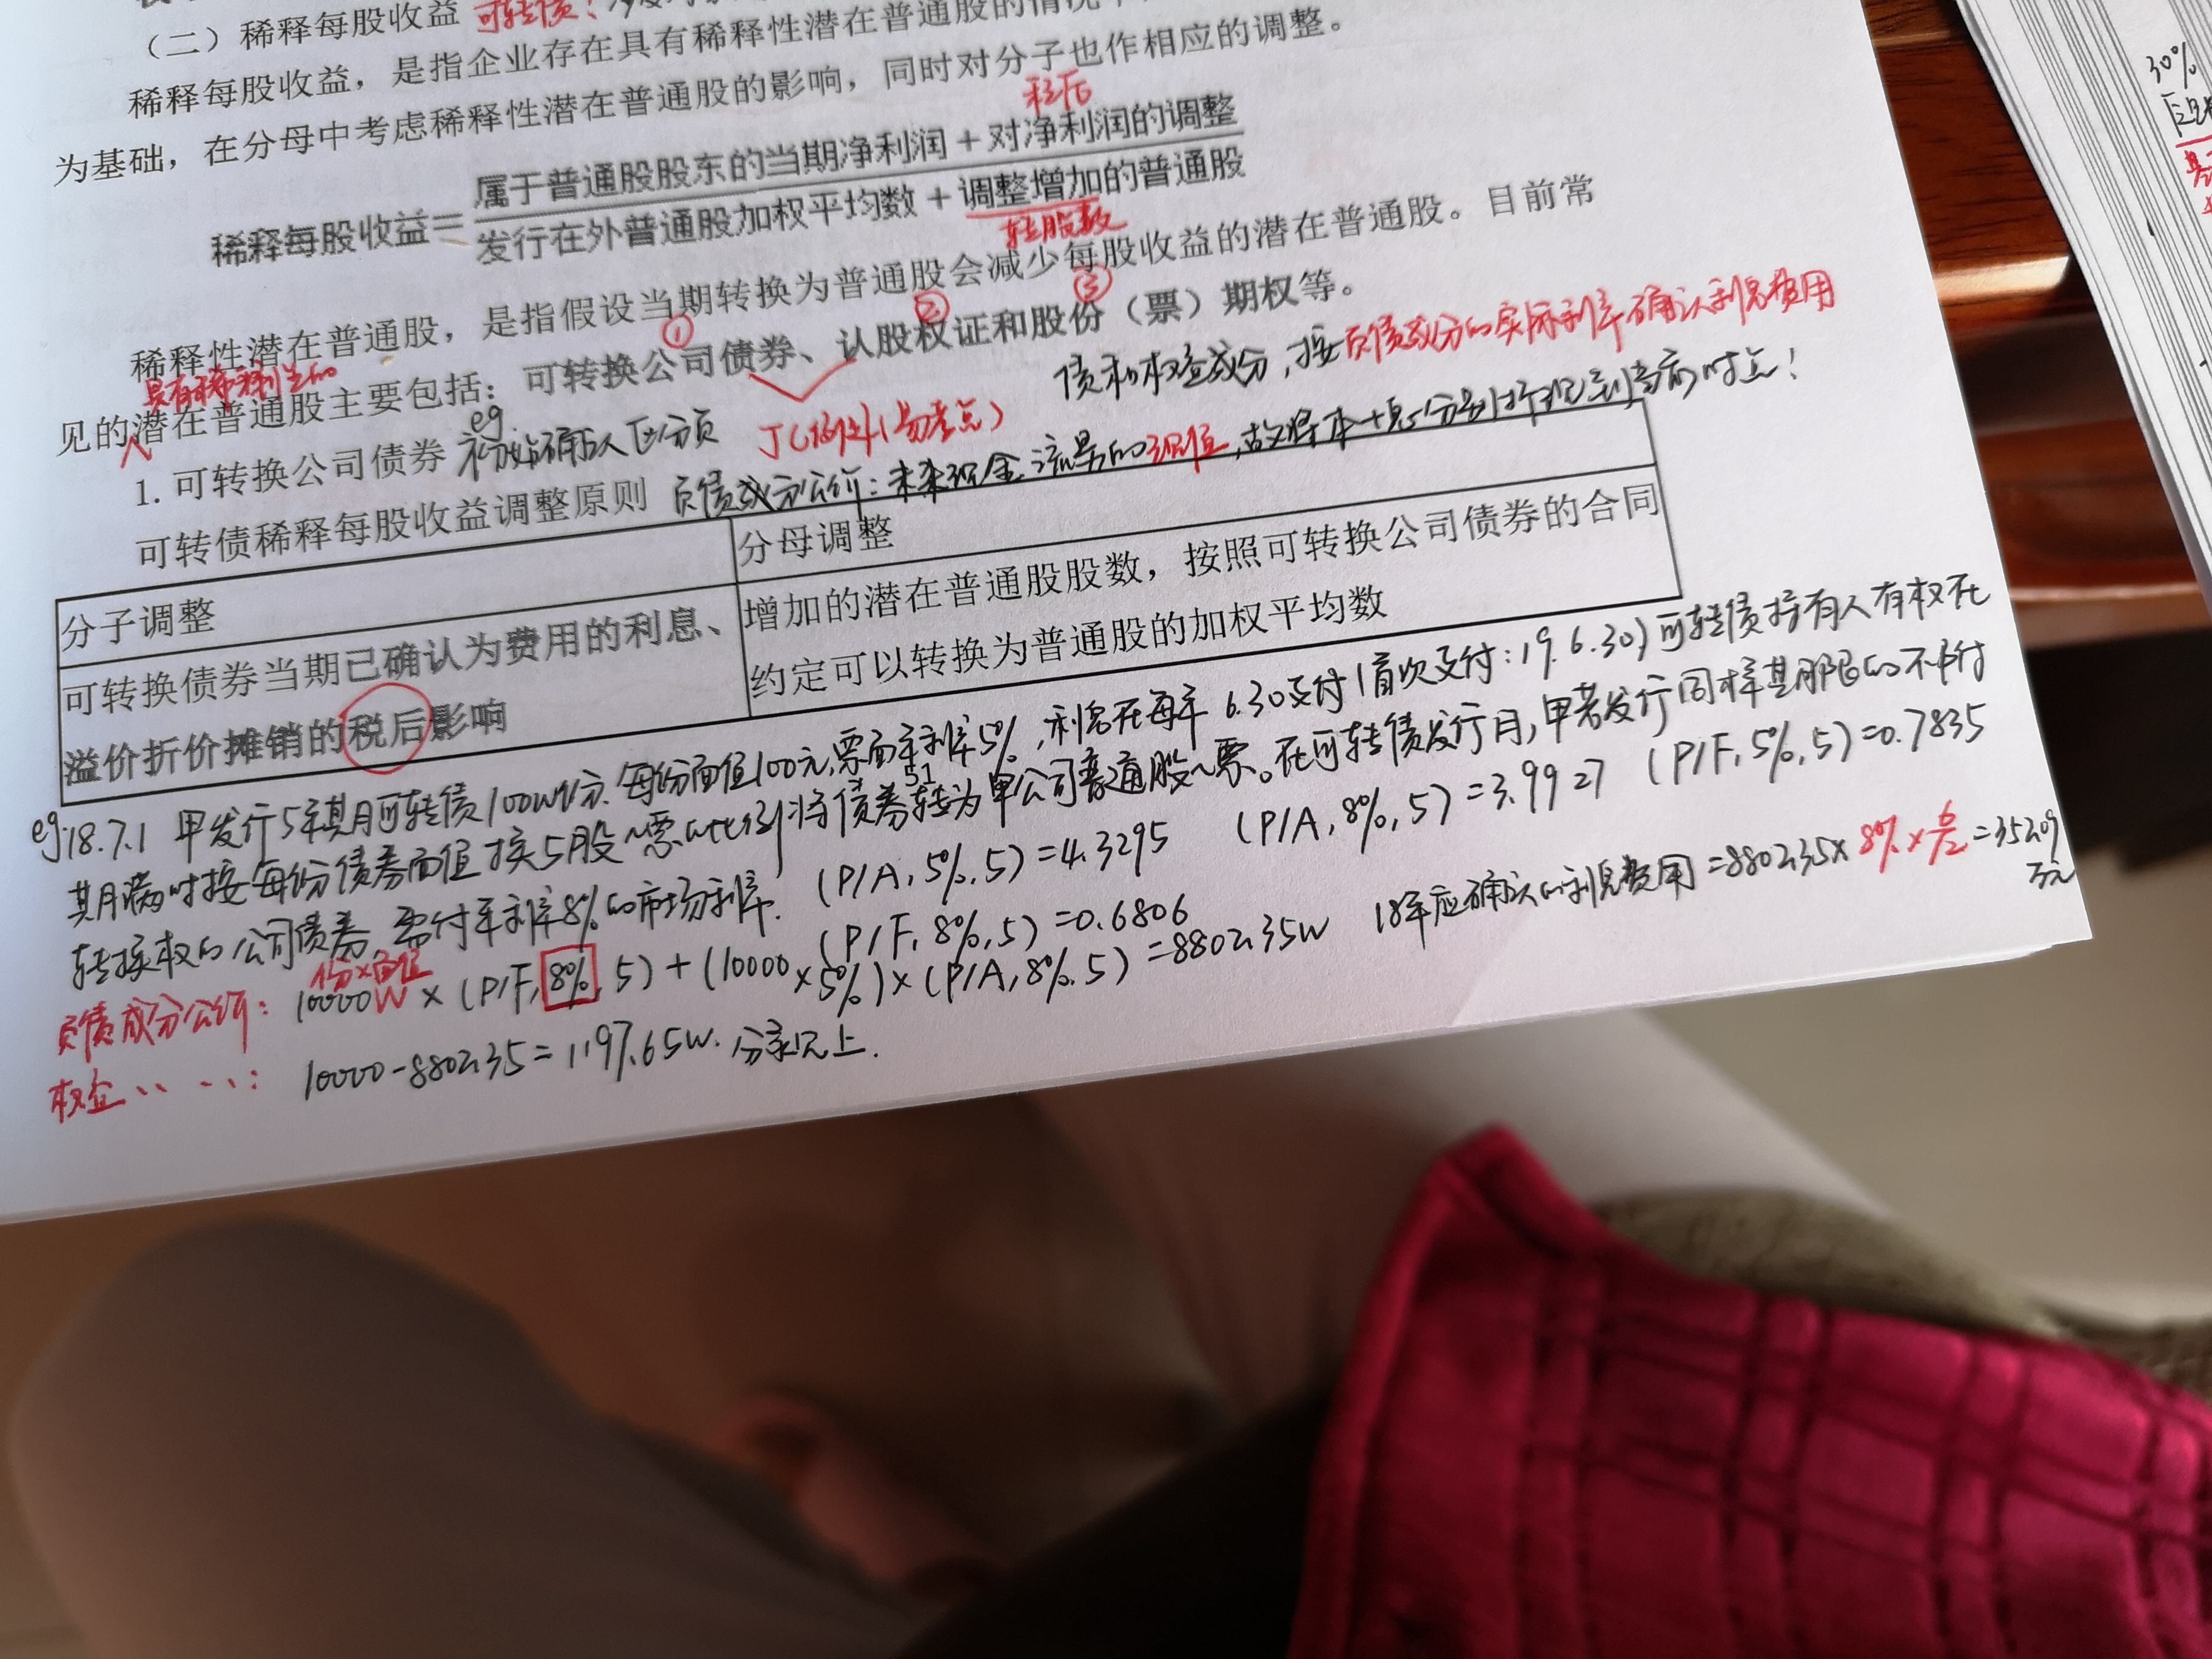 （二）稀释每股收益 可转债！
稀释每股收益，是指企业存在具有稀释性潜在普通股的情况
为基础，在分母中考虑稀释性潜在普通股的影响，同时对分子也作相应的调整。
税后
稀释每股收益=
属于普通股股东的当期净利润+对净利润的调整
发行在外普通股加权平均数+调整增加的普通股
转股数
稀释性潜在普通股，是指假设当期转换为普通股会减少每股收益的潜在普通股。目前常
具有稀释性的
① ② ③
见的潜在普通股主要包括：可转换公司债券、认股权证和股份（票）期权等。
1. 可转换公司债券 eg 初始确认区分负债和权益成分，按负债成分的实际利率确认利息费用
(易考点)
可转债稀释每股收益调整原则 负债成分公价：未来现金流量的现值，故将本+息分别折现到当前时点！
分子调整
分母调整
可转换债券当期已确认为费用的利息、
溢价折价摊销的税后影响
增加的潜在普通股股数，按照可转换公司债券的合同
约定可以转换为普通股的加权平均数
eg：18.7.1 甲发行5年期可转债100W份.每份面值100元，票面年利率5%，利息在每年6.30支付（首次支付：19.6.30）可转债持有人有权在
期满时按每份债券面值换5股~票的比例将债券转为甲公司普通股~票。在可转债发行月，甲若发行同样期限的不附
转换权的公司债券，需付年利率8%的市场利率.
(P/A,5%,5)=4.3295 (P/A,8%,5)=3.9927 (P/F,5%,5)=0.7835
(P/F,8%,5)=0.6806
18年应确认的利息费用=8802.35×8%×6/12=352.09
万元
份×面值
负债成分公价：10000W×(P/F,8%,5)+(10000×5%)×(P/A,8%.5)=8802.35W
权益、、、、：10000-8802.35=1197.65W. 分录见上.
30%